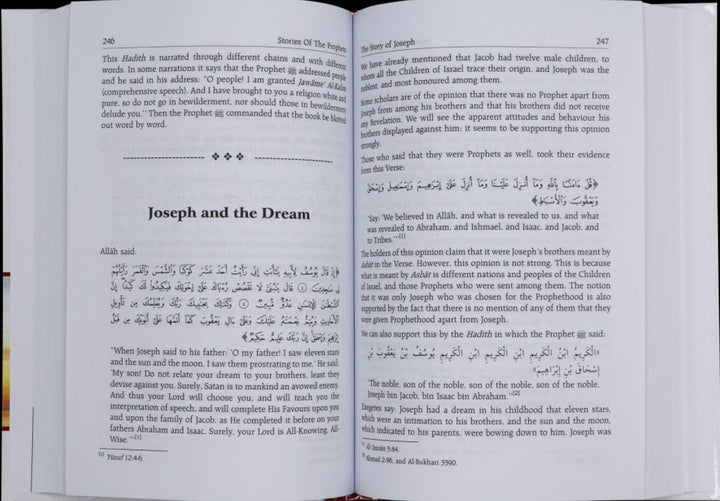 246
Stories Of The Prophets
This Hadith is narrated through different chains and with different
words. In some narrations it says that the Prophet ﷺ addressed people
and he said in his address: "O people! I am granted Jawâme' Al-Kalim
(comprehensive speech). And I have brought to you a religion white and
pure, so do not go in bewilderment, nor should those in bewilderment
delude you." Then the Prophet ﷺ commanded that the book be blotted
out word by word.
Joseph and the Dream
Allâh said:
﴿إِذْ قَالَ يُوسُفُ لِأَبِيهِ يَٰٓأَبَتِ إِنِّى رَأَيْتُ أَحَدَ عَشَرَ كَوْكَبًا وَٱلشَّمْسَ وَٱلْقَمَرَ رَأَيْتُهُمْ
لِى سَٰجِدِينَ ۝٤ قَالَ يَٰبُنَىَّ لَا تَقْصُصْ رُءْيَاكَ عَلَىٰٓ إِخْوَتِكَ فَيَكِيدُوا۟ لَكَ كَيْدًا إِنَّ
ٱلشَّيْطَٰنَ لِلْإِنسَٰنِ عَدُوٌّ مُّبِينٌ ۝٥ وَكَذَٰلِكَ يَجْتَبِيكَ رَبُّكَ وَيُعَلِّمُكَ مِن تَأْوِيلِ
ٱلْأَحَادِيثِ وَيُتِمُّ نِعْمَتَهُۥ عَلَيْكَ وَعَلَىٰٓ ءَالِ يَعْقُوبَ كَمَآ أَتَمَّهَا عَلَىٰٓ أَبَوَيْكَ مِن قَبْلُ
إِبْرَٰهِيمَ وَإِسْحَٰقَ إِنَّ رَبَّكَ عَلِيمٌ حَكِيمٌ﴾
"When Joseph said to his father: 'O my father! I saw eleven stars
and the sun and the moon, I saw them prostrating to me.' He said:
'My son! Do not relate your dream to your brothers, lest they
devise against you. Surely, Satan is to mankind an avowed enemy.
And thus your Lord will choose you, and will teach you the
interpretation of speech, and will complete His Favours upon you
and upon the family of Jacob, as He completed it before on your
fathers Abraham and Isaac. Surely, your Lord is All-Knowing, All-
Wise.'"[1]
[1] Yûsuf 12:4-6.
The Story of Joseph
247
We have already mentioned that Jacob had twelve male children, to
whom all the Children of Israel trace their origin, and Joseph was the
noblest, and most honoured among them.
Some scholars are of the opinion that there was no Prophet apart from
Joseph from among his brothers and that his brothers did not receive
any Revelation. We will see the apparent attitudes and behaviour his
brothers displayed against him; it seems to be supporting this opinion
strongly.
Those who said that they were Prophets as well, took their evidence
from this Verse:
﴿قُلْ ءَامَنَّا بِٱللَّهِ وَمَآ أُنزِلَ عَلَيْنَا وَمَآ أُنزِلَ عَلَىٰٓ إِبْرَٰهِيمَ وَإِسْمَٰعِيلَ وَإِسْحَٰقَ
وَيَعْقُوبَ وَٱلْأَسْبَاطِ﴾
"Say: 'We believed in Allâh, and what is revealed to us, and what
was revealed to Abraham, and Ishmael, and Isaac, and Jacob, and
to Tribes.'"[1]
The holders of this opinion claim that it were Joseph's brothers meant by
Asbât in the Verse. However, this opinion is not strong. This is because
what is meant by Asbât is different nations and peoples of the Children
of Israel, and those Prophets who were sent among them. The notion
that it was only Joseph who was chosen for the Prophethood is also
supported by the fact that there is no mention of any of them that they
were given Prophethood apart from Joseph.
We can also support this by the Hadith in which the Prophet ﷺ said:
«الْكَرِيمُ ابْنُ الْكَرِيمِ ابْنِ الْكَرِيمِ ابْنِ الْكَرِيمِ يُوسُفُ بْنُ يَعْقُوبَ بْنِ
إِسْحَاقَ بْنِ إِبْرَاهِيمَ»
"The noble, son of the noble, son of the noble, son of the noble,
Joseph bin Jacob, bin Isaac bin Abraham."[2]
Exegetes say: Joseph had a dream in his childhood that eleven stars,
which were an intimation to his brothers, and the sun and the moon,
which indicated to his parents, were bowing down to him. Joseph was
[1] Al-Imrân 3:84.
[2] Ahmad 2:96, and Al-Bukhari 3390.